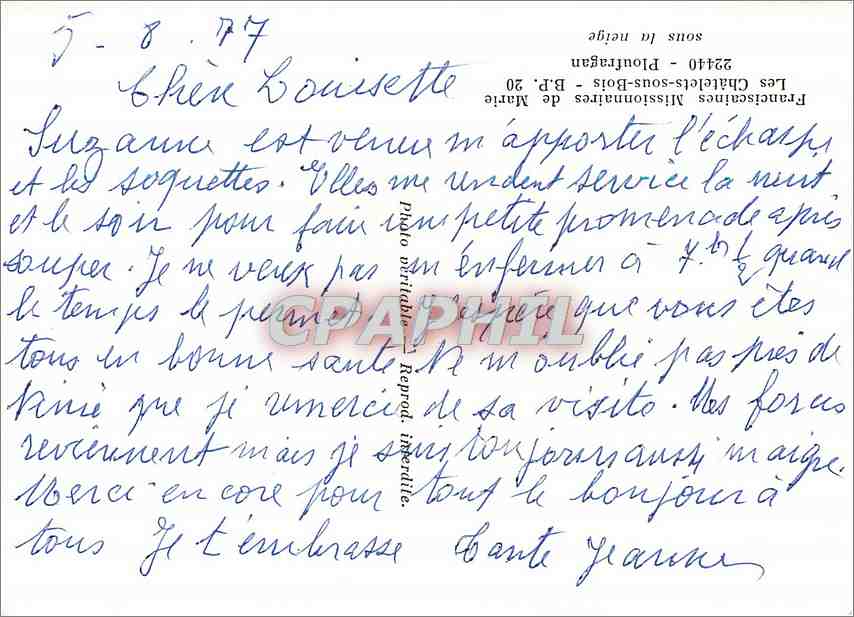 5 - 8 . 77
Chère Louisette
Suzanne est venue m'apporter l'écharpe
et les soquettes. Elles me rendent service la nuit
et le soir pour faire une petite promenade après
souper. Je ne veux pas m'enfermer à 7.h 1/2 quand
le temps le permet. J'espère que vous êtes
tous en bonne santé Ne m'oublie pas près de
Ninie que je remercie de sa visite. Mes forces
reviennent mais je suis toujours aussi maigre.
Merci encore pour tout le bonjour à
tous Je t'embrasse Tante Jeanne
Franciscaines Missionnaires de Marie
Les Châtelets-sous-Bois - B.P. 20
22440 - Ploufragan
sous la neige
Photo véritable - Reprod. interdite.
CPAPHIL